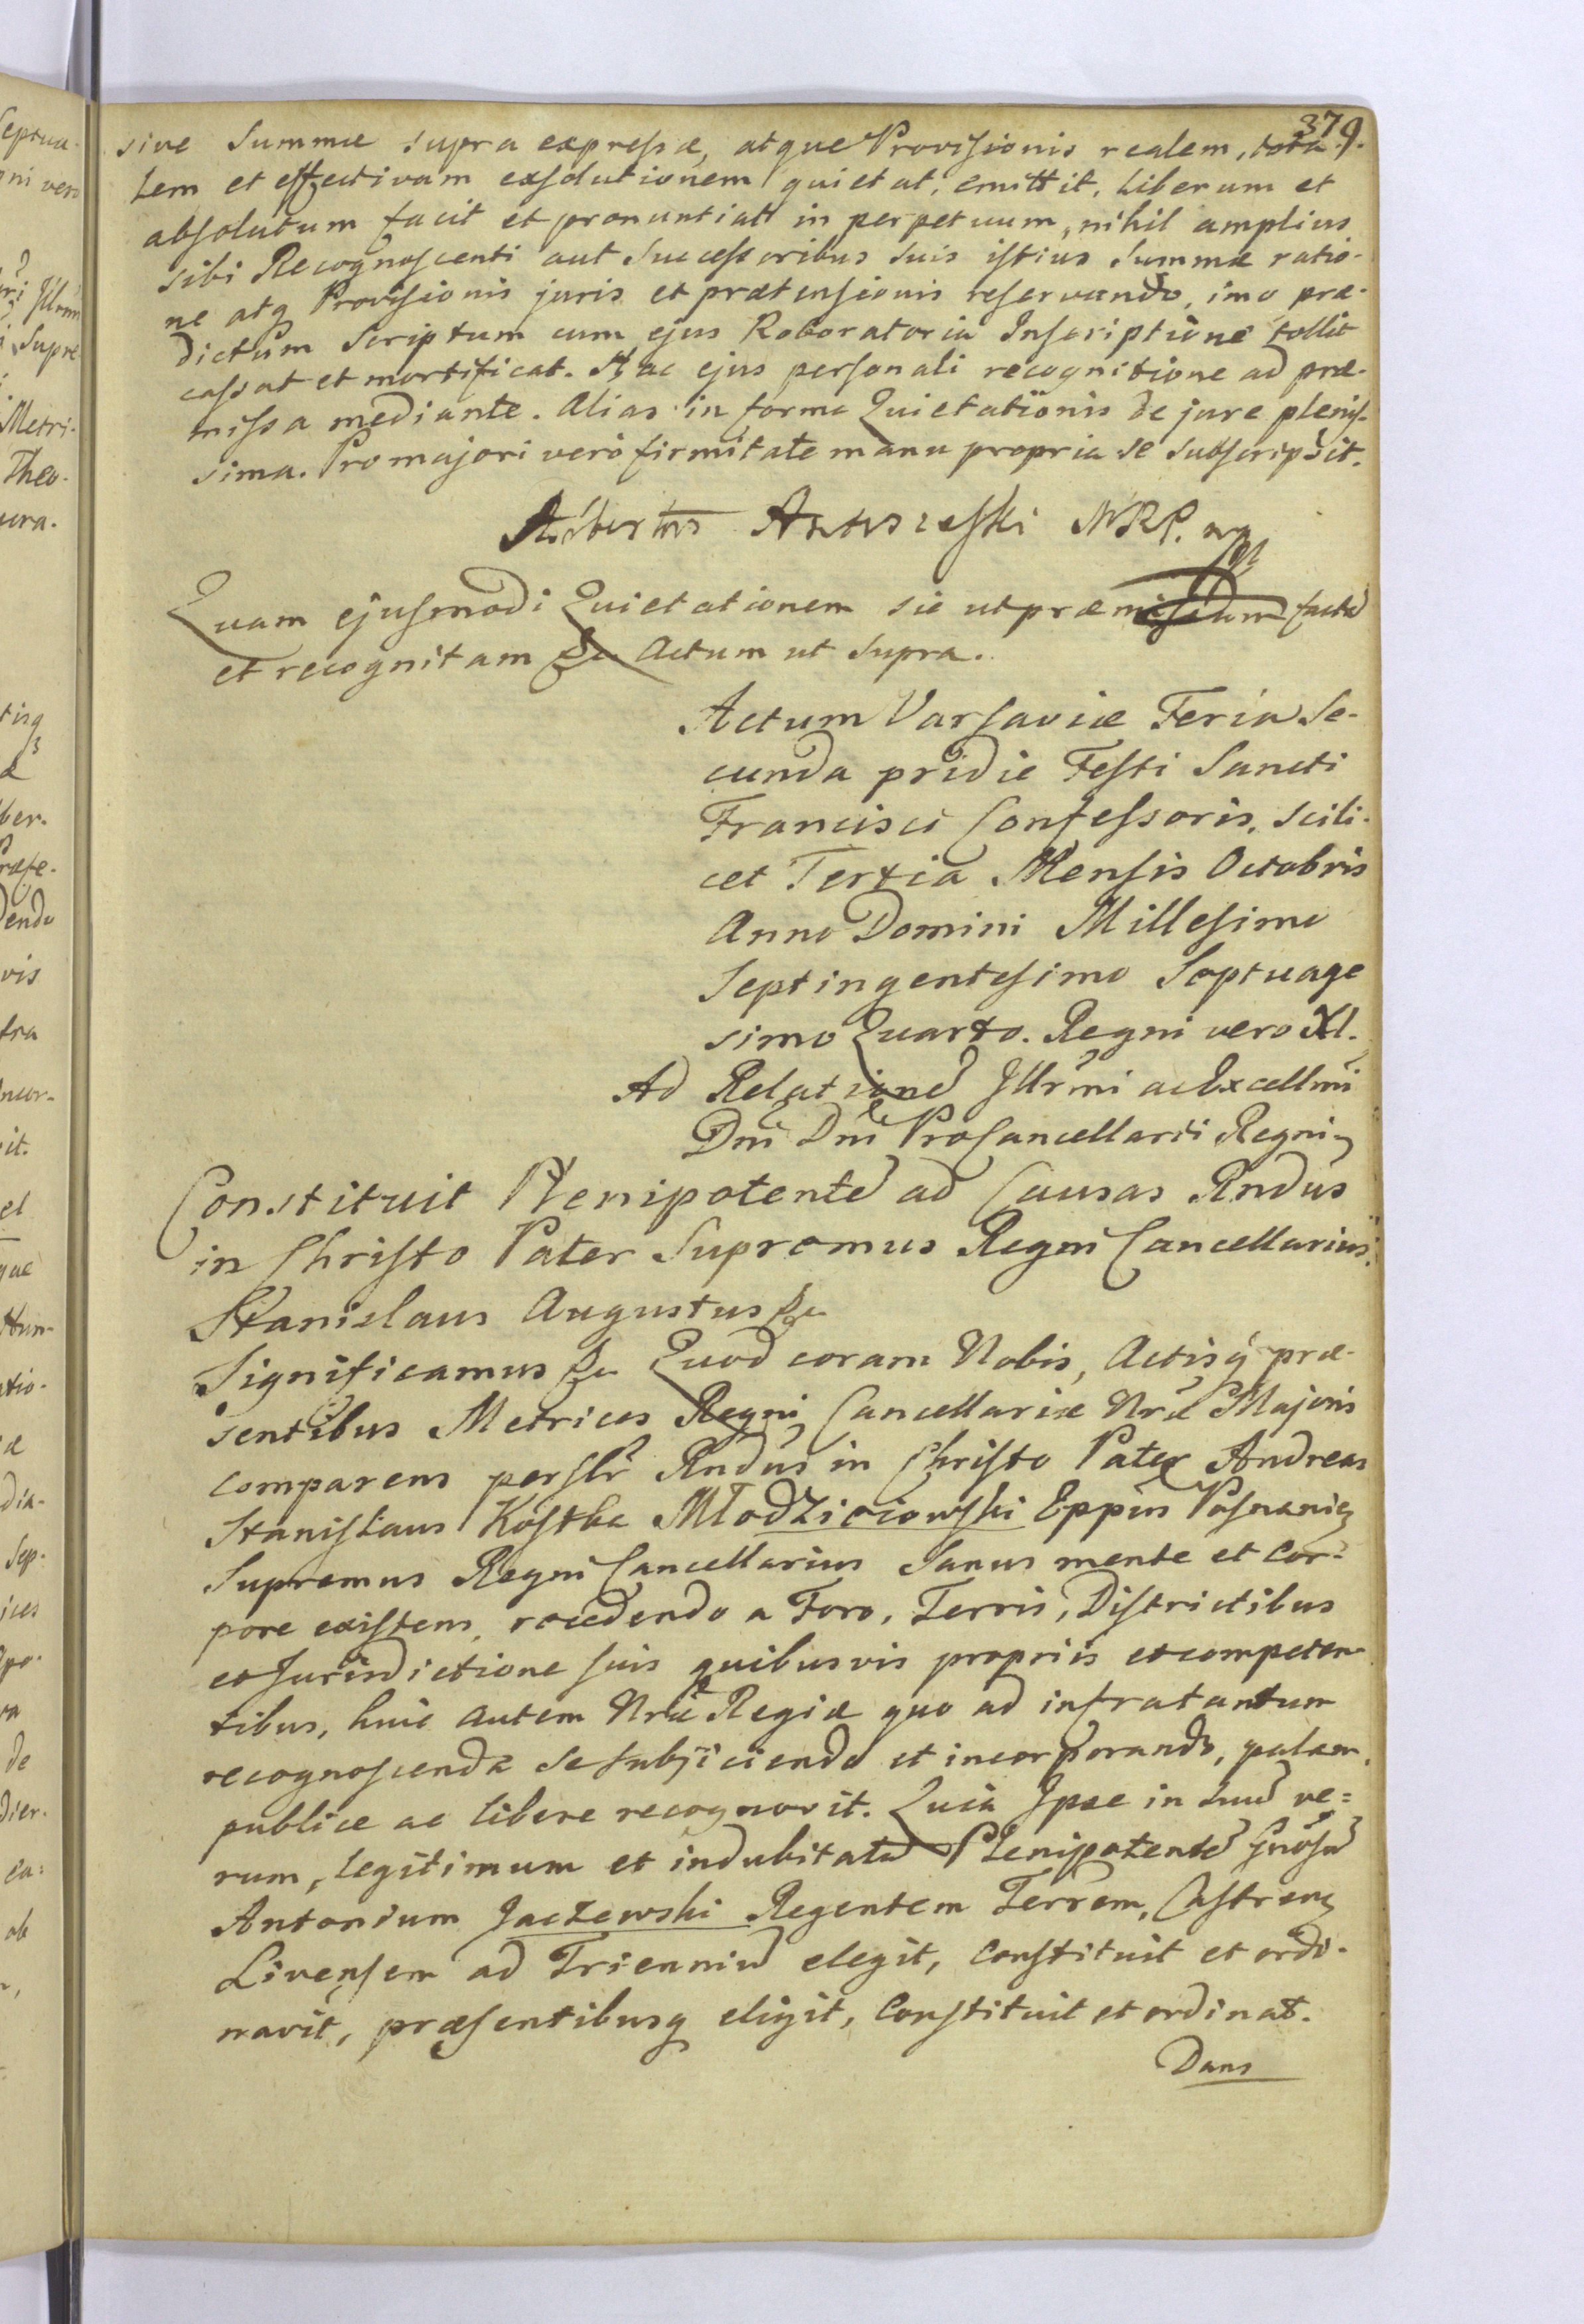 379.
sive Summæ supra expressæ, atque Provisionis realem, tota-
lem et effectivam exsolutionem quietat, emittit, liberum et
absolutum facit et pronuntiat in perpetuum, nihil amplius
sibi Recognoscenti aut Successoribus suis istius Summæ ratio-
ne atq Provisionis juris et prætensionis reservando, imo præ-
dictum Scriptum cum ejus Roboratoria Inscriptione tollit
cassat et mortificat. Hac ejus personali recognitione ad præ-
missa mediante. Alias in forma Quietationis de jure plenis-
sima. Pro majori vero firmitate manu propria se subscripsit.
Albertus
Quam ejusmodi Quietationem sic ut præmissum factã
et recognitam &c Actum ut supra.
Actum Varsaviæ Feria Se-
cunda pridie Festi Sancti
Francisci Confessoris, scili-
cet Tertia Mensis Octobris
Anno Domini Millesimo
Septingentesimo Septuage
simo Quarto. Regni vero XI.
Ad Relationẽ Illrmi ac Excellmi
Dni Dni ProCancellarii Regni
Constituit Plenipotentẽ ad Causas Rndus
in Christo Pater Supremus Regni Cancellarius.
Stanislaus Augustus &c
Significamus &c Quod coram Nobis, Actisq præ-
sentibus Metrices Regni Cancellariæ Nræ Majoris
comparens perslr Rndus in Christo Pater Andreas
Stanislaus Kostka Młodzieiowski Eppus Posnanien
Supremus Regni Cancellarius Sanus mente et Cor-
pore existens, recedendo a Foro, Terris, Districtibus
et Jurisdictione suis quibusvis propriis et competen-
tibus, huic autem Nræ Regiæ quo ad infra tantum
recognoscenda se subjiciendo et incorporando, palam
publice ac libere recognovit. Quia Ipse in Suũ ve=
rum, legitimum et indubitatũ Plenipotentẽ Gnosũ
Antonium Jaczewski Regentem Terrem, Castren
Livensem ad Trienniũ elegit, constituit et ordi-
navit, præsentibusq eligit, Constituit et ordinat.
Dans